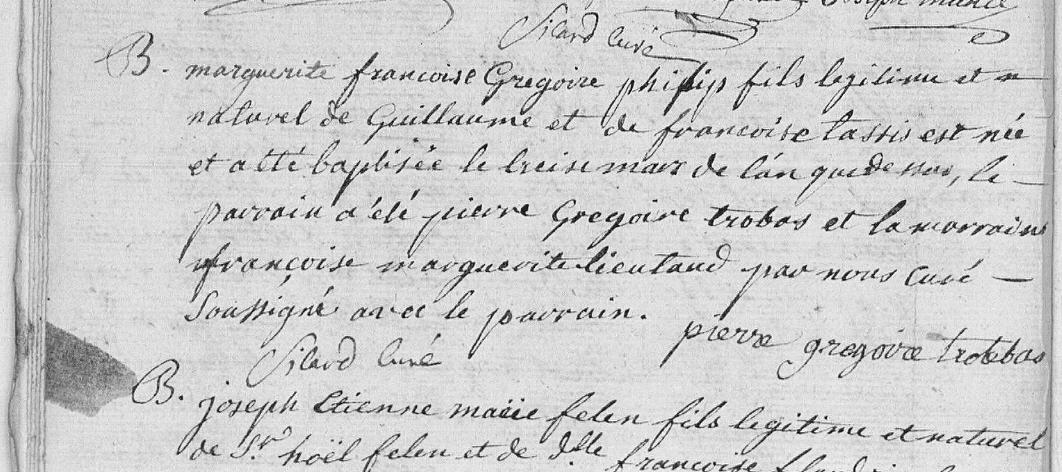 Joseph
Silard Curé
B. marguerite francoise Gregoire philip fils legitime et n
naturel de Guillaume et de francoise tassis est née
et a été baptisée le treise mars de l'an que dessus, le
parrain a été pierre Gregoire trobas et la marraine
françoise marguerite lieutaud par nous Curé
Soussigné avec le parrain.
pierre gregoire trotebas
Silard Curé
B. joseph Etienne marie felen fils legitime et naturel
de Sr. hoël felen et de dlle francoise